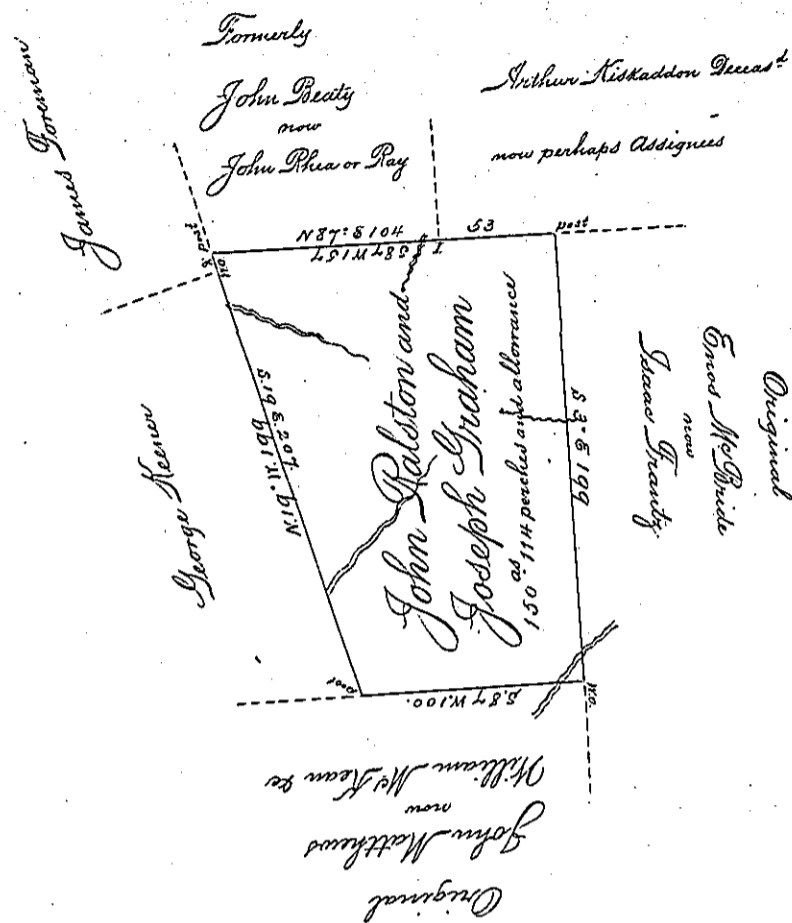 Formerly
John Beaty
now
John Rhea or Ray
Arthur Kiskaddon Deceasd
now perhaps Assignees
James Foreman
post
N87:E104
S87W157
53
post
George Keener
S.19 E 207
N.19 W. 199
John Ralston and
Joseph Graham
as
150 . 114 perches and allowance
S 3° E 199
Original
Enos McBride
now
Isaac Frantz
post
S.87 W.100.
W.O.
Original
John Matthews
now
William McKean &c